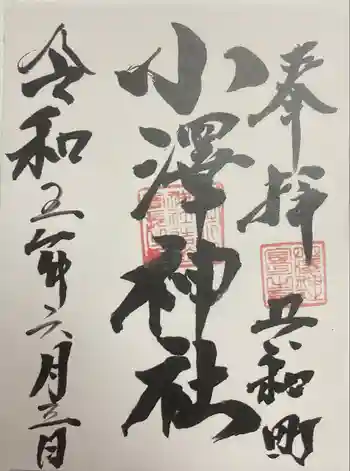 奉拝
共和町
小澤神社
令和五年六月三日